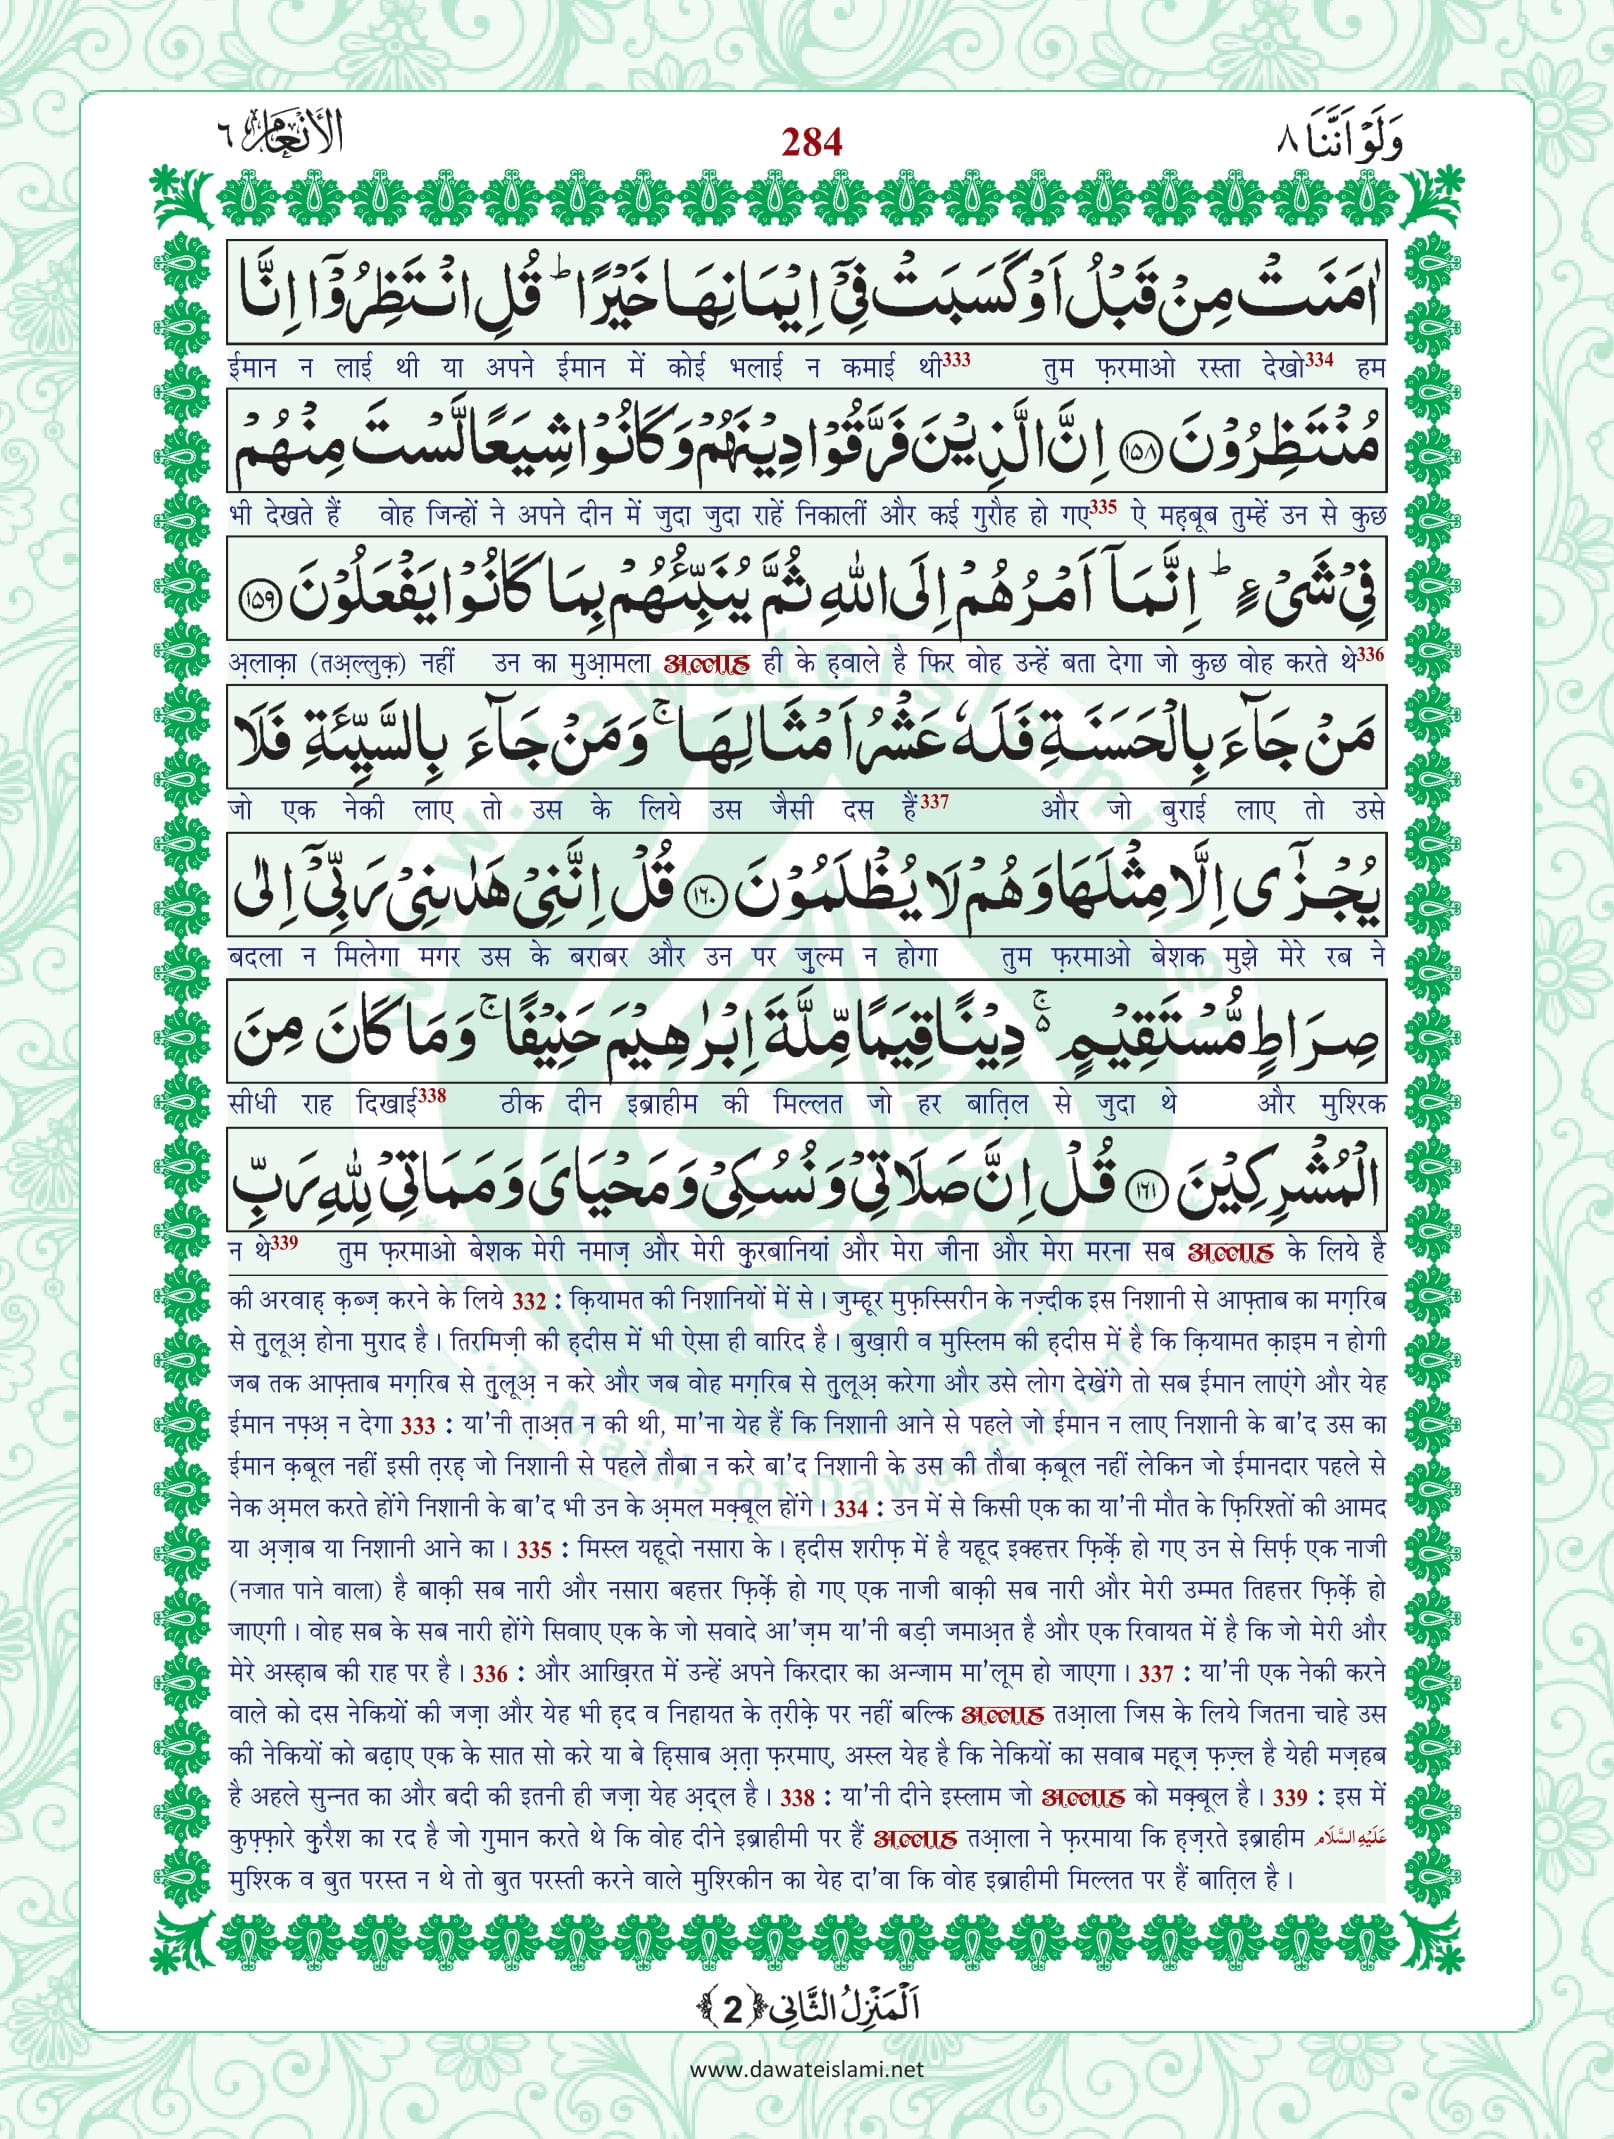 وَلَوْ اَنَّنَا ٨ 284 الْاَنْعَام ٦
اٰمَنَتْ مِنْ قَبْلُ اَوْ كَسَبَتْ فِیْۤ اِیْمَانِهَا خَیْرًاؕ قُلِ انْتَظِرُوْۤا اِنَّا
ईमान न लाई थी या अपने ईमान में कोई भलाई न कमाई थी333 तुम फ़रमाओ रस्ता देखो334 हम
مُنْتَظِرُوْنَ ﴿۱۵۸﴾ اِنَّ الَّذِیْنَ فَرَّقُوْا دِیْنَهُمْ وَ كَانُوْا شِیَعًا لَّسْتَ مِنْهُمْ
भी देखते हैं वोह जिन्हों ने अपने दीन में जुदा जुदा राहें निकालीं और कई गुरौह हो गए335 ऐ मह़बूब तुम्हें उन से कुछ
فِیْ شَیْءٍؕ اِنَّمَاۤ اَمْرُهُمْ اِلَى اللّٰهِ ثُمَّ یُنَبِّئُهُمْ بِمَا كَانُوْا یَفْعَلُوْنَ ﴿۱۵۹﴾
अ़लाक़ा (तअ़ल्लुक़) नहीं उन का मुआ़मला अल्लाह ही के ह़वाले है फिर वोह उन्हें बता देगा जो कुछ वोह करते थे336
مَنْ جَآءَ بِالْحَسَنَةِ فَلَهٗ عَشْرُ اَمْثَالِهَاۚ وَ مَنْ جَآءَ بِالسَّیِّئَةِ فَلَا
जो एक नेकी लाए तो उस के लिये उस जैसी दस हैं337 और जो बुराई लाए तो उसे
یُجْزٰۤى اِلَّا مِثْلَهَا وَ هُمْ لَا یُظْلَمُوْنَ ﴿۱۶۰﴾ قُلْ اِنَّنِیْ هَدٰىنِیْ رَبِّیْۤ اِلٰى
बदला न मिलेगा मगर उस के बराबर और उन पर ज़ुल्म न होगा तुम फ़रमाओ बेशक मुझे मेरे रब ने
صِرَاطٍ مُّسْتَقِیْمٍ ۚ۬ دِیْنًا قِیَمًا مِّلَّةَ اِبْرٰهِیْمَ حَنِیْفًاۚ وَ مَا كَانَ مِنَ
सीधी राह दिखाई338 ठीक दीन इब्राहीम की मिल्लत जो हर बात़िल से जुदा थे और मुश्रिक
الْمُشْرِكِیْنَ ﴿۱۶۱﴾ قُلْ اِنَّ صَلَاتِیْ وَ نُسُكِیْ وَ مَحْیَایَ وَ مَمَاتِیْ لِلّٰهِ رَبِّ
न थे339 तुम फ़रमाओ बेशक मेरी नमाज़ और मेरी क़ुरबानियां और मेरा जीना और मेरा मरना सब अल्लाह के लिये है
की अरवाह़ क़ब्ज़ करने के लिये 332 : क़ियामत की निशानियों में से। जुम्हूर मुफ़स्सिरीन के नज़्दीक इस निशानी से आफ़्ताब का मग़रिब
से त़ुलूअ़ होना मुराद है। तिरमिज़ी की ह़दीस में भी ऐसा ही वारिद है। बुख़ारी व मुस्लिम की ह़दीस में है कि क़ियामत क़ाइम न होगी
जब तक आफ़्ताब मग़रिब से त़ुलूअ़ न करे और जब वोह मग़रिब से त़ुलूअ़ करेगा और उसे लोग देखेंगे तो सब ईमान लाएंगे और येह
ईमान नफ़्अ़ न देगा 333 : या'नी त़ाअ़त न की थी, मा'ना येह हैं कि निशानी आने से पहले जो ईमान न लाए निशानी के बा'द उस का
ईमान क़बूल नहीं इसी त़रह़ जो निशानी से पहले तौबा न करे बा'द निशानी के उस की तौबा क़बूल नहीं लेकिन जो ईमानदार पहले से
नेक अ़मल करते होंगे निशानी के बा'द भी उन के अ़मल मक़्बूल होंगे। 334 : उन में से किसी एक का या'नी मौत के फ़िरिश्तों की आमद
या अ़ज़ाब या निशानी आने का। 335 : मिस्ल यहूदो नसारा के। ह़दीस शरीफ़ में है यहूद इक्हत्तर फ़िर्क़े हो गए उन से सिर्फ़ एक नाजी
(नजात पाने वाला) है बाक़ी सब नारी और नसारा बहत्तर फ़िर्क़े हो गए एक नाजी बाक़ी सब नारी और मेरी उम्मत तिहत्तर फ़िर्क़े हो
जाएगी। वोह सब के सब नारी होंगे सिवाए एक के जो सवादे आ'ज़म या'नी बड़ी जमाअ़त है और एक रिवायत में है कि जो मेरी और
मेरे अस्ह़ाब की राह पर है। 336 : और आख़िरत में उन्हें अपने किरदार का अन्जाम मा'लूम हो जाएगा। 337 : या'नी एक नेकी करने
वाले को दस नेकियों की जज़ा और येह भी ह़द व निहायत के त़रीक़े पर नहीं बल्कि अल्लाह तआ़ला जिस के लिये जितना चाहे उस
की नेकियों को बढ़ाए एक के सात सो करे या बे ह़िसाब अ़त़ा फ़रमाए, अस्ल येह है कि नेकियों का सवाब मह़्ज़ फ़ज़्ल है येही मज़हब
है अहले सुन्नत का और बदी की इतनी ही जज़ा येह अ़द्ल है। 338 : या'नी दीने इस्लाम जो अल्लाह को मक़्बूल है। 339 : इस में
कुफ़्फ़ारे क़ुरैश का रद है जो गुमान करते थे कि वोह दीने इब्राहीमी पर हैं अल्लाह तआ़ला ने फ़रमाया कि ह़ज़रते इब्राहीम عَلَيْهِ السَّلَام
मुश्रिक व बुत परस्त न थे तो बुत परस्ती करने वाले मुश्रिकीन का येह दा'वा कि वोह इब्राहीमी मिल्लत पर हैं बात़िल है।
اَلْمَنْزِلُ الثَّانِی ﴿2﴾
www.dawateislami.net